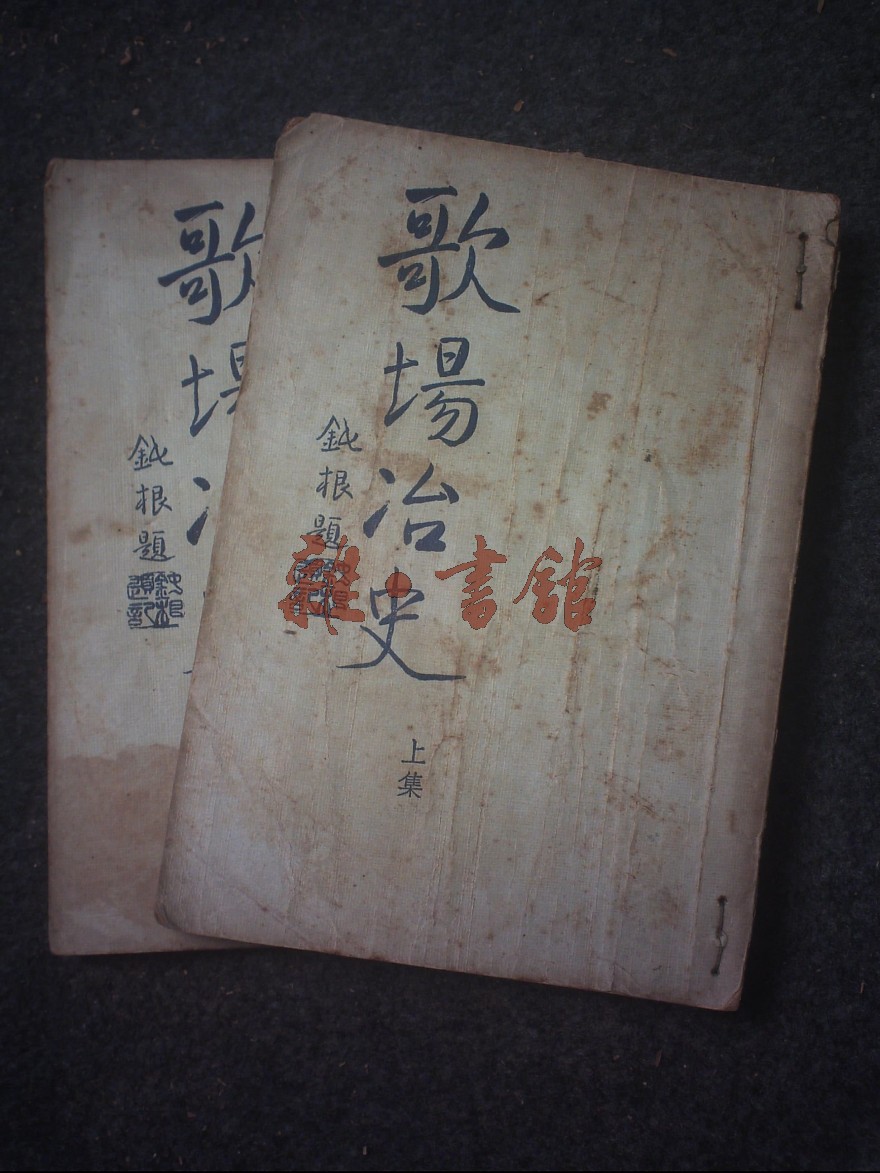 歌場冶史
上集
鈍根題
歌場
鈍根題
雜·書館